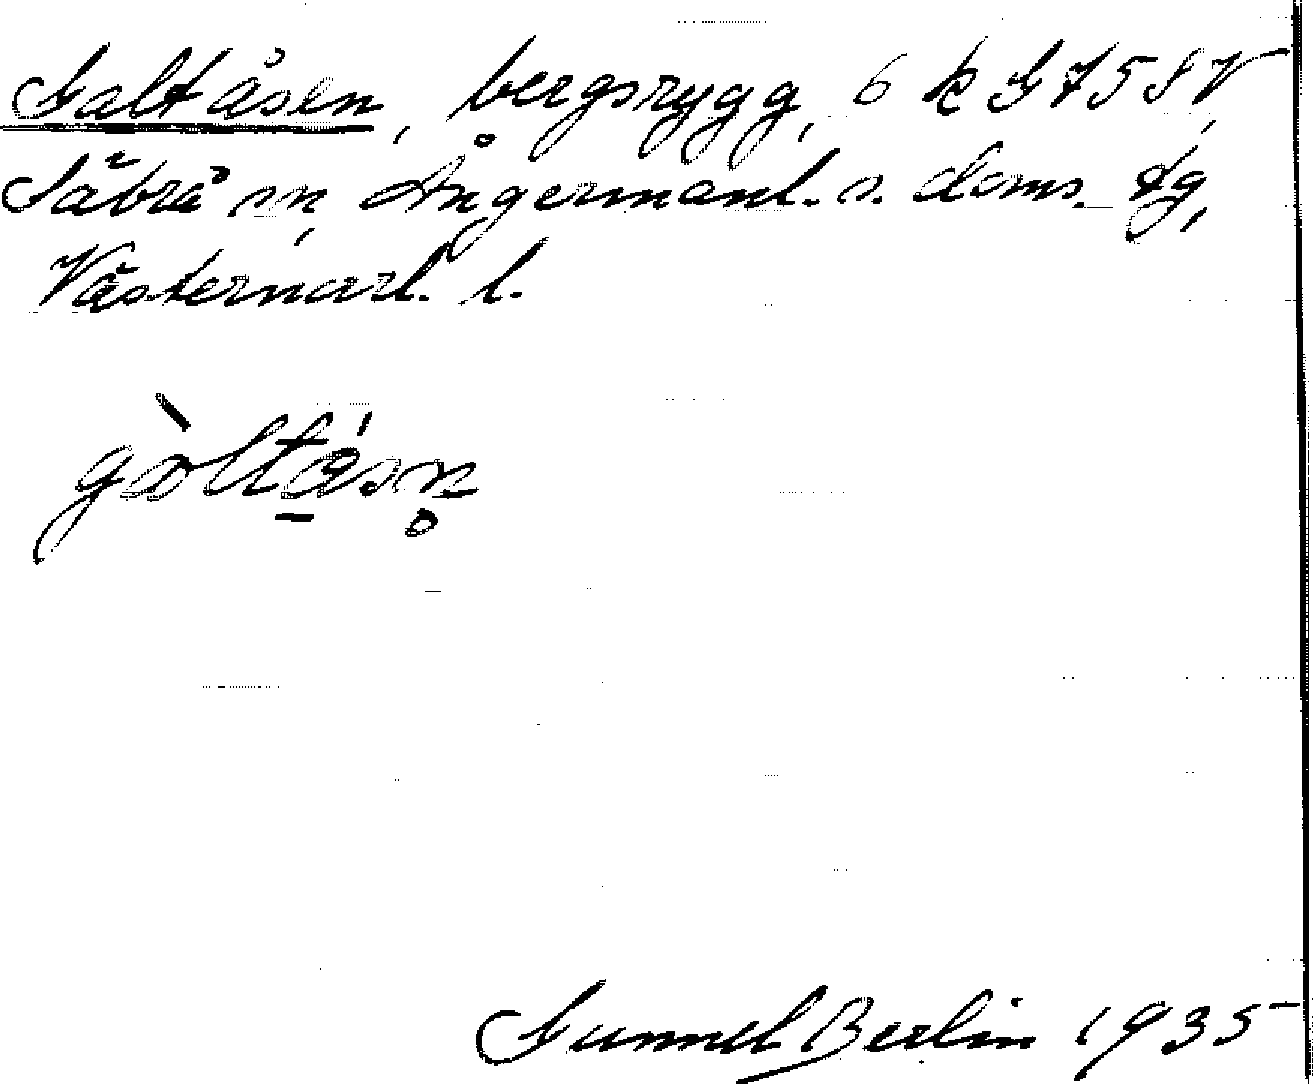 Galtåsen, bergsrygg, 6 k G 75 8 V
Säbrå sn, Ångermanl. s. doms. tg,
Västernorl. l.
gòltǻsn̥
Gunnel Berlin 1935